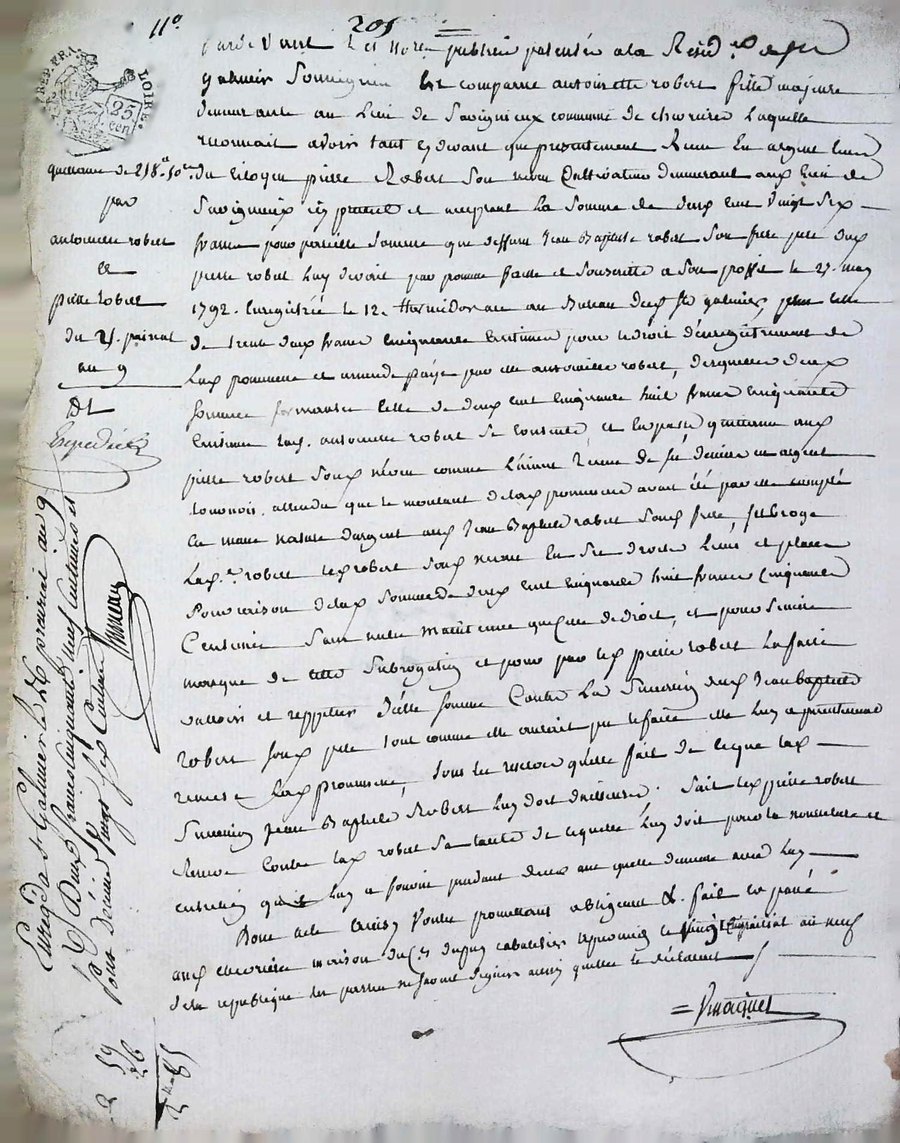 11e 205
REP. FRA. LOIRE. 25 cen
pardevant les Nores publics patentés a la Residce de St
galmier Soussignés est comparue antoinette robert fille majeure
demeurante au Lieu de Savignieux commune de chevrieres Laquelle
reconnait avoir tant cy devant que presentement Reçu En argent
du citoyen pierre Robert Son neveu Cultivateur demeurant aux Lieu de
Savignieux icy present et acceptant La Somme de deux cent vingt Six
francs pour pareille Somme que deffunt Jean Baptiste robert Son frere pere dud
pierre robert Luy devoit par promesse faite et Souscritte a Son proffit le 27 may
1792. Enregistrée le 12 thermidor au Bureau dud St galmier, celle
de trente deux francs cinquante centimes pour le droit d'enregistrement de
Lad promesse et amende payé par elle antoinette robert, desquelles deux
sommes formantes celle de deux cent cinquante huit francs cinquante
Centimes Lad. antoinette robert Se Contente, et En passe quittance aud
pierre robert Soud neveu comme L'ayant Reçue de ses deniers en argent
attendu que le montant de lad promesse avait été par elle compté
En meme nature d'argent aud Jean Baptiste robert Soud frere, Subroge
Lad. robert led robert Soud neveu En Ses droits Lieux et places
Pour raison de lad Somme de deux cent cinquante huit francs cinquante
Centimes Sans autre maintenue que de droit, et pour Servir
marque de cette Subrogation et pour par led pierre robert La faire
valloir et reppeter d'icelle Somme Contre La Succession dud Jean Baptiste
robert Soud pere tout comme elle auroit pu le faire elle Luy a presentement
remise Lad promesse, Sous la reserve qu'elle fait de ce que lad
Succession Jean Baptiste Robert Luy doit d'ailleurs. Sauf led pierre robert
Contre lad robert Sa tante de ce qu'elle Luy doit pour la nourriture et
entretien qu'il Luy a fourni pendant deux ans qu'elle demeure avec Luy
Dont acte promettant obligeant &. fait et passé
aud chevrieres maison du Cen dupuy cabaretier le vingt cinq prairial an neuf
de la republique les parties ne Savent Signer ainsi qu'elles le déclarent
= Vinagnet
quittance de 258.f 50c
par
antoinette robert
a
pierre robert
du 25. prairial
an 9
Dt
Expediée
Enreg. a St Galmier le 26 prairial an 9
Deux francs cinquante neuf centimes
pour Décime vingt Six Centimes
2 59
26
2 85